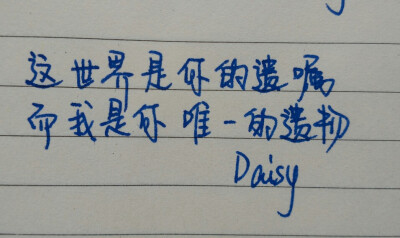 这世界是你的遗嘱
而我是你唯一的遗物
Daisy